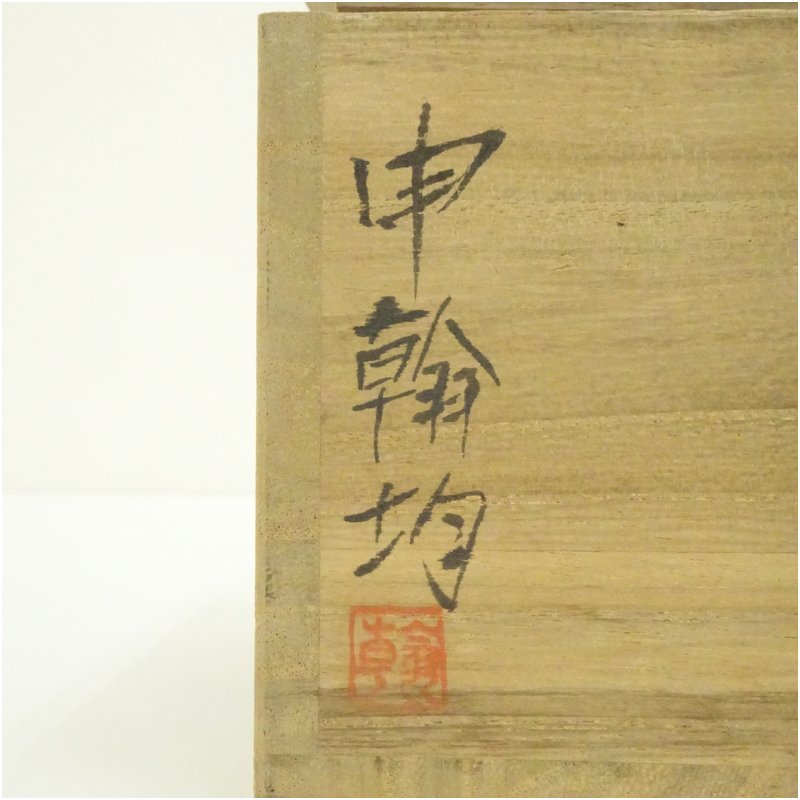 申翰均
翰